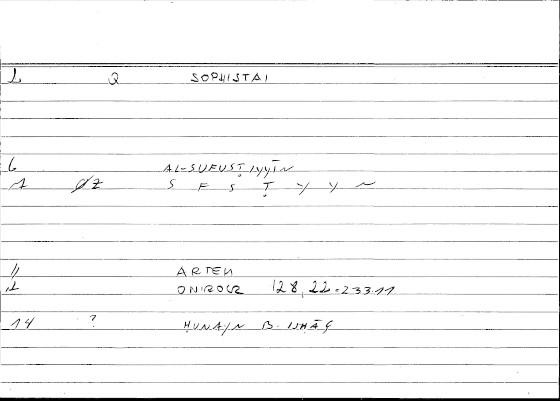 1 Q SOPHISTAI
6 AL-SUFUSṬIYYĪN
7 ØZ S F S Ṭ Y Y N
11 ARTEM
1 ONIROCR 128,22=233.11
14 ? ḤUNAYN B. ISḤĀQ